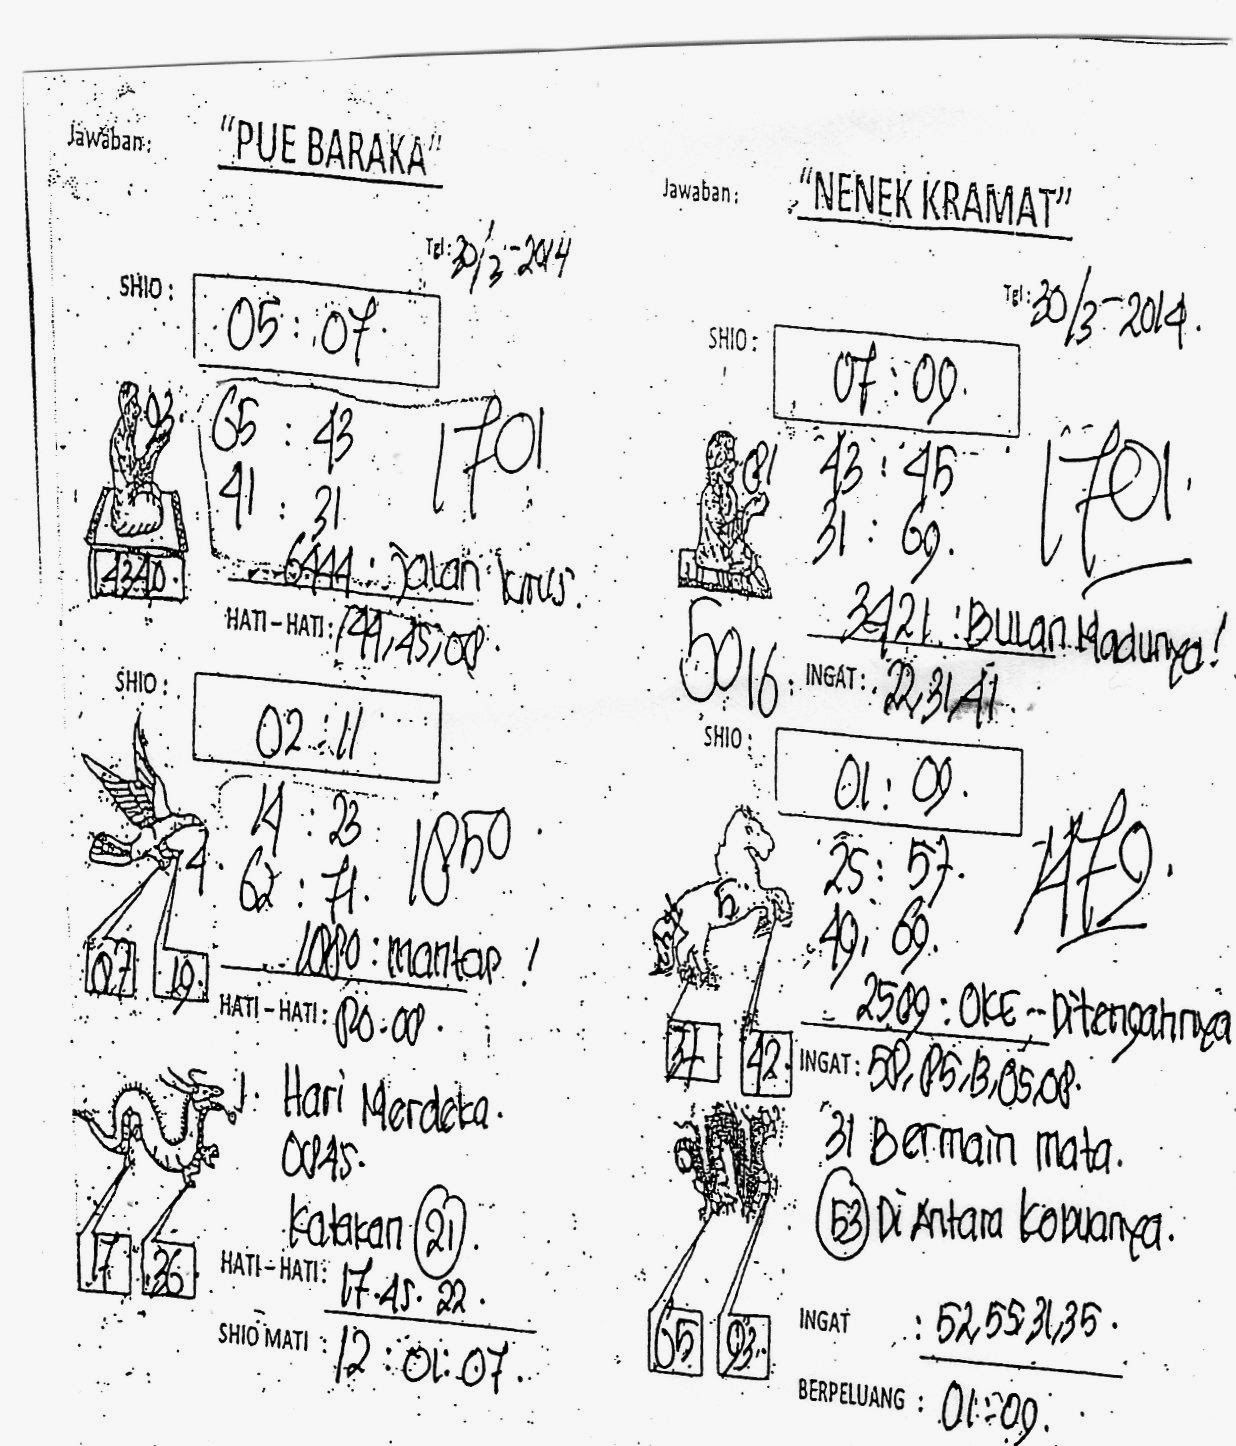 Jawaban: "PUE BARAKA"
Tgl: 30/3-2014
SHIO: 05 : 07.
03.
65 : 43
1701
41 : 31
4340.
6444 : Jalan krus.
HATI-HATI: 144, 45, 08.
SHIO: 02 : 11
14 : 23
1850.
4.
62 : 71.
1080 : mantap !
07 19.
HATI-HATI: 80-08.
1. Hari Merdeka.
0845.
katakan 21.
17 26
HATI-HATI: 17.45.22.
SHIO MATI : 12 : 01 : 07.
Jawaban: "NENEK KRAMAT"
Tgl: 30/3-2014.
SHIO: 07 : 09.
81
43 : 45
1701.
31 : 69.
3421 : BULAN Madunya!
5016.
INGAT: 22,31,41.
SHIO: 01 : 09.
25 : 57.
1472.
49, 69.
2589 : OKE - Ditengahnya
37 42.
INGAT: 58, 85, 13, 05, 08.
31 Bermain mata.
6
53 Di Antara
65 93.
INGAT : 52,55,31,35.
BERPELUANG : 01-09.